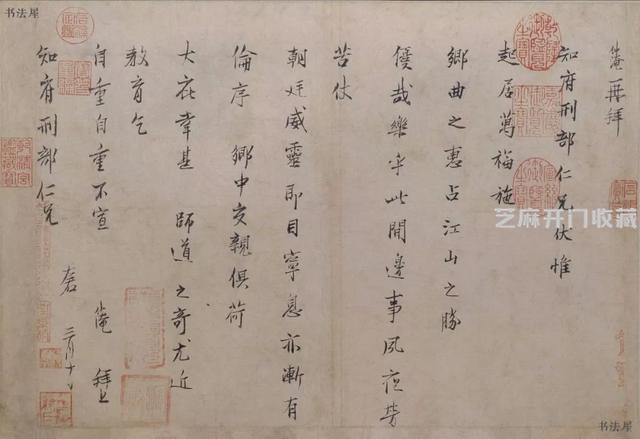 书法星
淹再拜
知府刑部仁兄伏惟
起居萬福施
鄉曲之惠占江山之勝
優哉樂乎此間邊事夙夜勞
苦仗
朝廷威靈即目寧息亦漸有
倫序 鄉中交親俱荷
大庇幸甚 師道之奇尤近
教育乞
自重自重不宣 淹 拜上
知府刑部仁兄 左右 三月十日
芝麻开门收藏
书法星